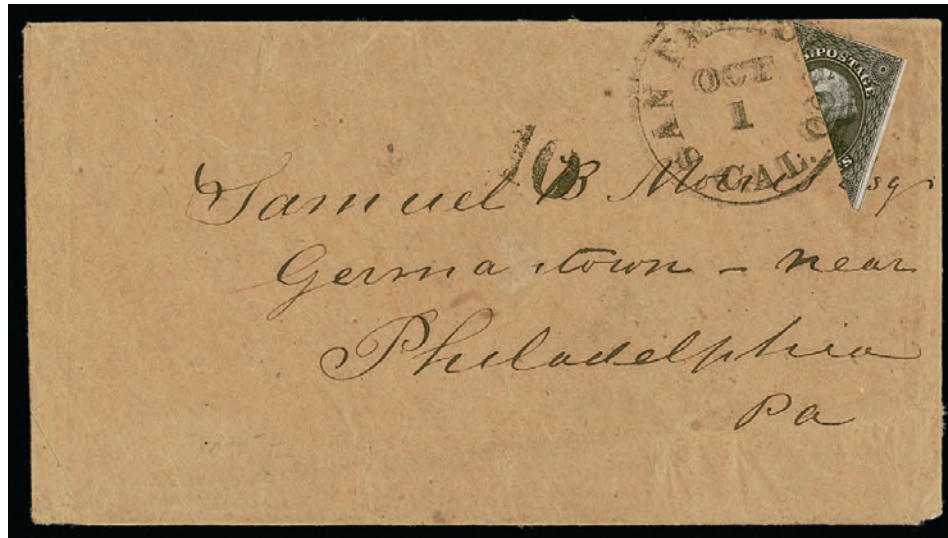 SAN FRANCISCO
OCT
1
CAL.
S. POSTAGE
S
10
Samuel B Morris Esqr
Germantown - near
Philadelphia
Pa